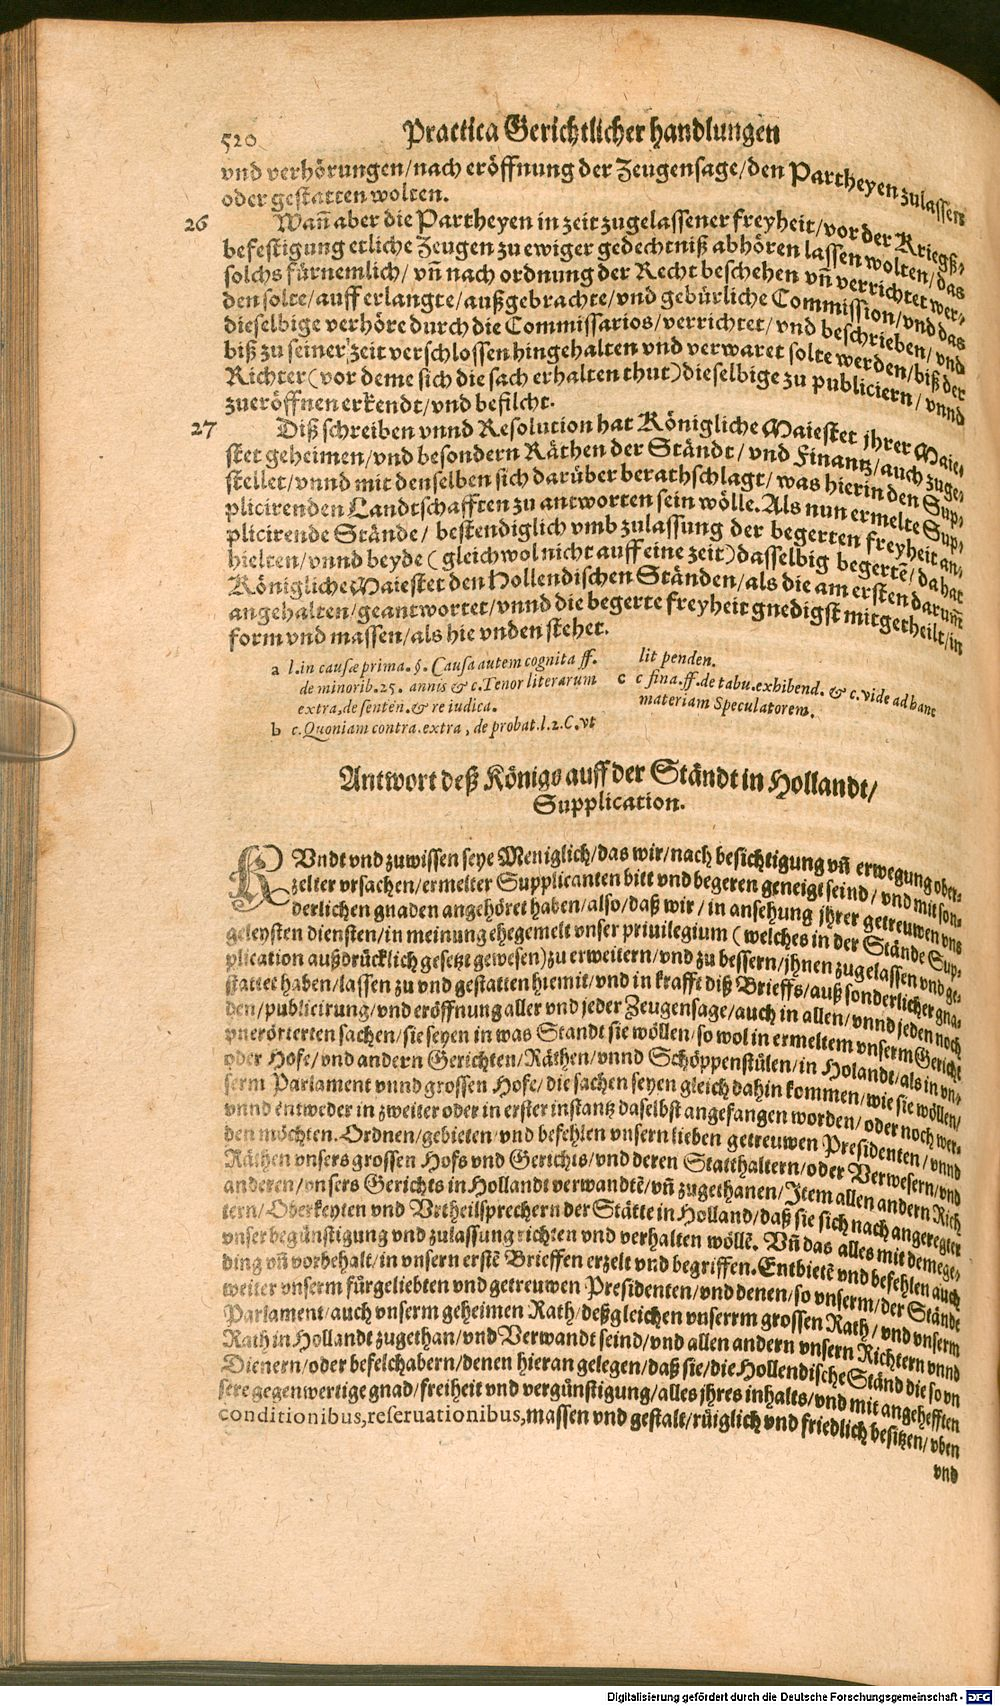 520 Practica Gerichtlicher handlungen
vnd verhörungen/nach eröffnung der Zeugensage/den Partheyen zulassen
oder gestatten wolten.
26 Wañ aber die Partheyen in zeit zugelassener freyheit/vor der Kriegß-
befestigung etliche Zeugen zu ewiger gedechtniß abhören lassen wolten/das
solchs fürnemlich/ vñ nach ordnung der Recht beschehen vñ verrichtet wer-
den solte/auff erlangte/außgebrachte/vnd gebürliche Commission/vnd das
dieselbige verhöre durch die Commissarios/verrichtet/vnd beschrieben/vnd
biß zu seiner zeit verschlossen hingehalten vnd verwaret solte werden/biß der
Richter (vor deme sich die sach erhalten thut) dieselbige zu publiciern/vnnd
zueröffnen erkendt/vnd befilcht.
27 Diß schreiben vnnd Resolution hat Königliche Maiestet jhrer Maie-
stet geheimen/vnd besondern Räthen der Ständt/ vnd Finantz/auch zuge-
stellet/vnnd mit denselben sich darüber berathschlagt/was hierin den Sup-
plicirenden Landtschafften zu antworten sein wölle. Als nun ermelte Sup-
plicirende Stände/ bestendiglich vmb zulassung der begerten freyheit an-
hielten/vnnd beyde (gleichwol nicht auff eine zeit) dasselbig begertē/da hat
Königliche Maiestet den Hollendischen Ständen/als die am ersten darum̄
angehalten/geantwortet/vnnd die begerte freyheit gnedigst mitgetheilt/in
form vnd massen/als hie vnden stehet.
a l.in causæ prima. §. Causa autem cognita ff.
de minorib.25. annis & c.Tenor literarum
extra,de senten.& re iudica.
b c.Quoniam contra.extra, de probat.l.2.C.vt
lit penden.
c c fina.ff.de tabu.exhibend. & c.vide ad hanc
materiam Speculatorem.
Antwort deß Königs auff der Ständt in Hollandt/
Supplication.
KVndt vnd zuwissen seye Meniglich/das wir/nach besichtigung vñ erwegung ober-
zelter vrsachen/ermelter Supplicanten bitt vnd begeren geneigt seind/vnd mit son-
derlichen gnaden angehöret haben/also/daß wir/in ansehung jhrer getreuwen vns
geleysten diensten/in meinung ehegemelt vnser priuilegium (welches in der Stände Sup-
plication außdrücklich gesetzt gewesen) zu erweitern/vnd zu bessern/jhnen zugelassen vnd ge-
stattet haben/lassen zu vnd gestatten hiemit/vnd in krafft diß Brieffs/auß sonderlicher gna-
den/publicirung/vnd eröffnung aller vnd jeder Zeugensage/auch in allen/vnnd jeden noch
vnerörterten sachen/sie seyen in was Standt sie wöllen/so wol in ermeltem vnserm Gericht
oder Hofe/vnd andern Gerichten/Räthen/vnnd Schöppenstülen/in Holandt/als in vn-
serm Parlament vnnd grossen Hofe/die sachen seyen gleich dahin kommen/wie sie wöllen/
vnnd entweder in zweiter oder in erster instantz daselbst angefangen worden/oder noch wer-
den möchten. Ordnen/gebieten vnd befehlen vnsern lieben getreuwen Presidenten/vnnd
Räthen vnsers grossen Hofs vnd Gerichts/vnd deren Statthaltern/oder Verwesern/vnd
anderen/vnsers Gerichts in Hollandt verwandtē/vñ zugethanen/Item allen andern Rich
tern/Oberkeyten vnd Vrtheilsprechern der Stätte in Holland/daß sie sich nach angeregter
vnser begünstigung vnd zulassung richten vnd verhalten wöllē. Vñ das alles mit demege-
ding vñ vorbehalt/in vnsern erstē Brieffen erzelt vnd begriffen. Entbietē vnd befehlen auch
weiter vnserm fürgeliebten vnd getreuwen Presidenten/vnd denen/so vnserm/der Stände
Parlament/auch vnserm geheimen Rath/deßgleichen vnserrm grossen Rath/vnd vnserm
Rath in Hollandt zugethan/vnd Verwandt seind/vnd allen andern vnsern Richtern vnnd
Dienern/oder befelchabern/denen hieran gelegen/daß sie/die Hollendische Ständ die so vn
sere gegenwertige gnad/freiheit vnd vergünstigung/alles jhres inhalts/vnd mit angehefften
conditionibus,reseruationibus,massen vnd gestalt/rüiglich vnd friedlich besitzen/vben
vnd
Digitalisierung gefördert durch die Deutsche Forschungsgemeinschaft - DFG